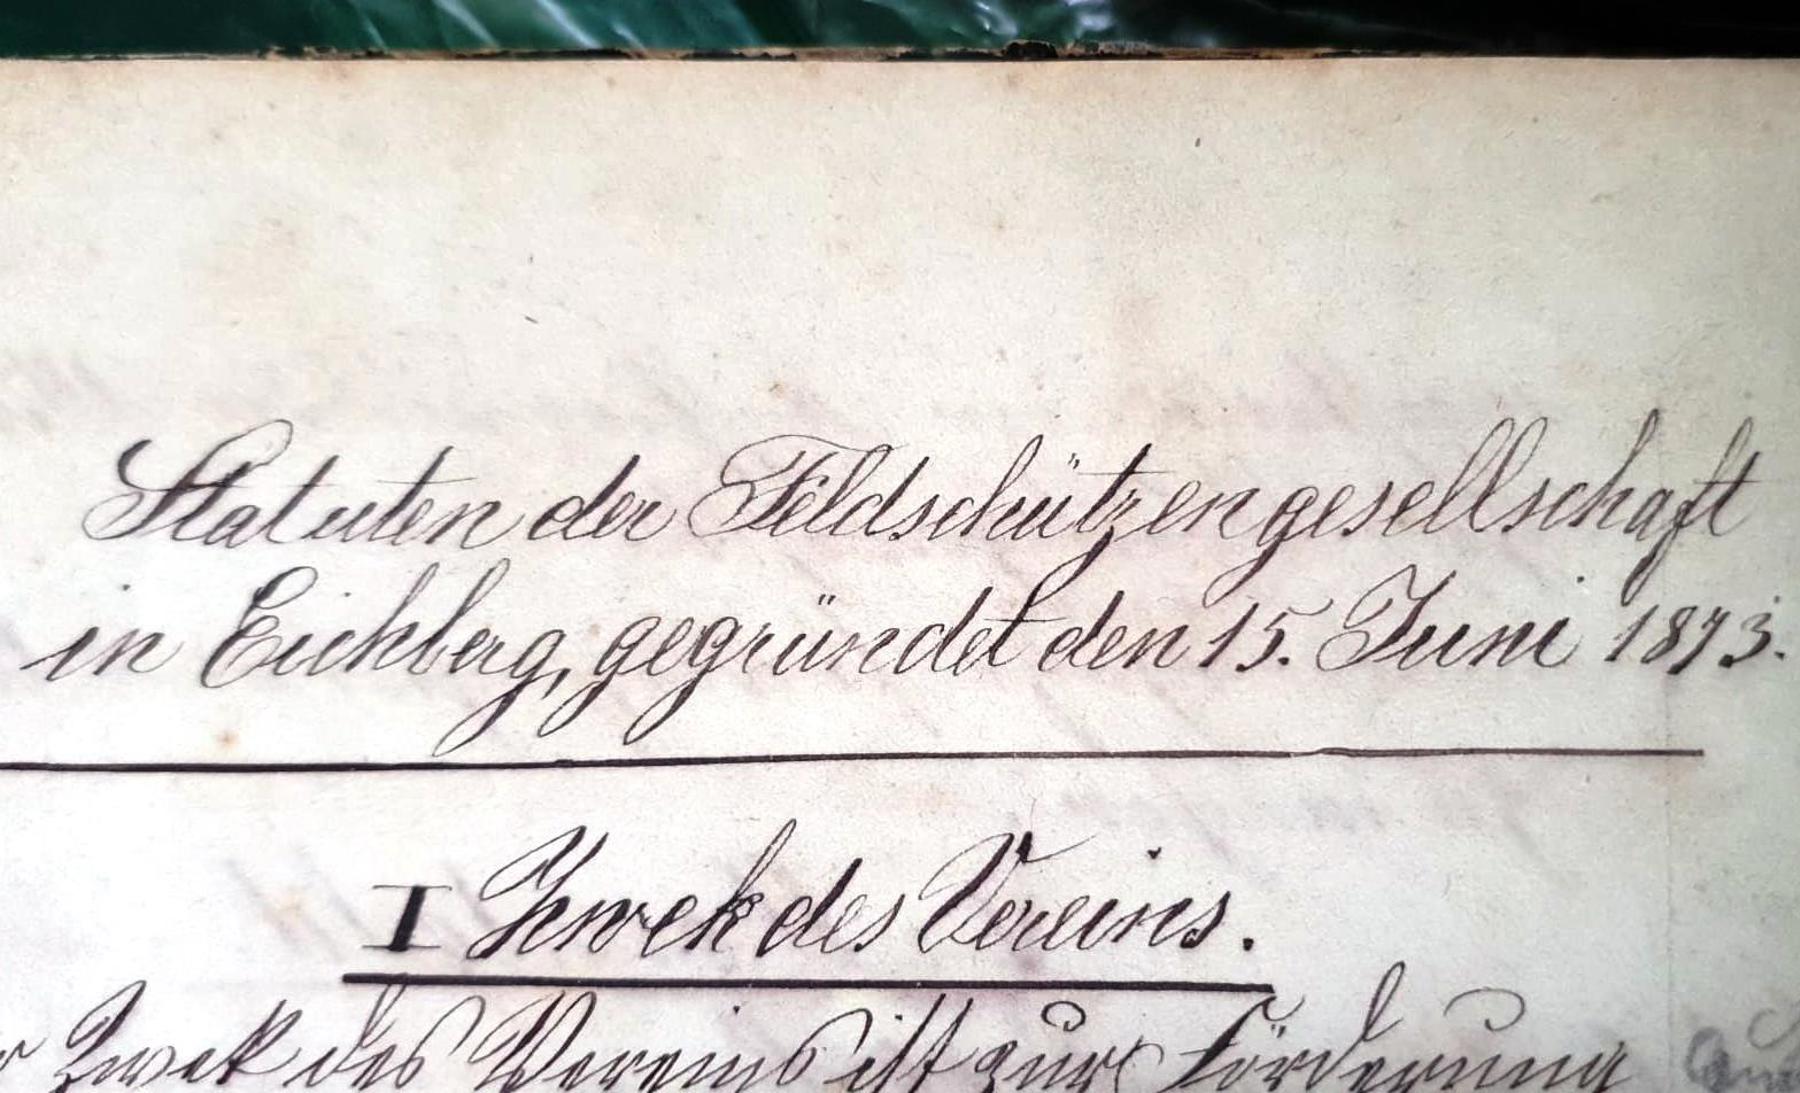 Statuten der Feldschützengesellschaft
in Eichberg, gegründet den 15. Juni 1873.
I Zwek des Vereins.
Zwek des Vereins ist zur Förderung